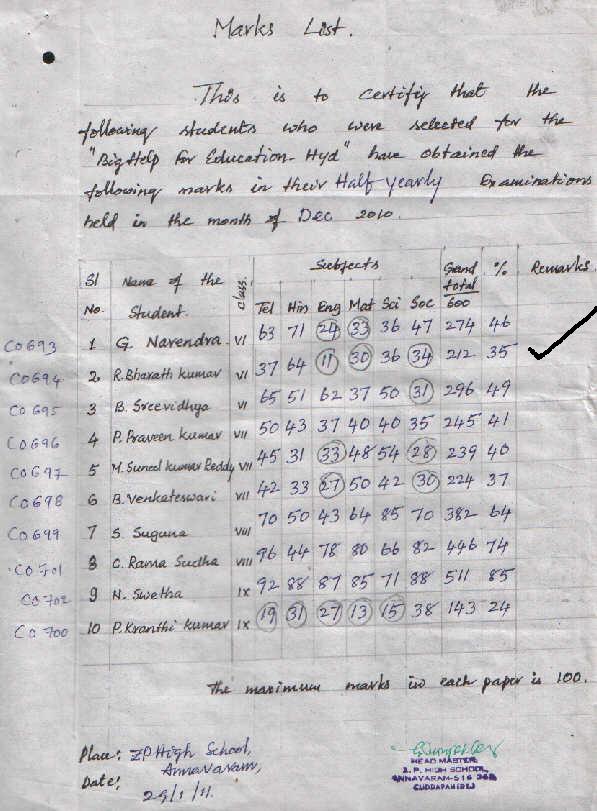 Marks List.
This is to certify that the
following students who were selected for the
"Big Help For Education - Hyd" have obtained the
following marks in their Half yearly Examinations
held in the month of Dec 2010.
Sl No. Name of the Student. class. Subjects Grand total 600 % Remarks.
Tel Hin Eng Mat Sci Soc
CO693 1 G. Narendra VI 63 71 24 33 36 47 274 46
CO694 2 R.Bharath kumar VI 37 64 11 30 36 34 212 35
CO695 3 B. Sreevidhya VI 65 51 62 37 50 31 296 49
CO696 4 P. Praveen kumar VII 50 43 37 40 40 35 245 41
CO697 5 M. Suneel kumar Reddy VII 45 31 33 48 54 28 239 40
CO698 6 B. Venkateswari VII 42 33 27 50 42 30 224 37
CO699 7 S. Suguna VIII 70 50 43 64 85 70 382 64
CO701 8 C. Rama Sudha VIII 96 44 78 80 66 82 446 74
CO702 9 N. Swetha IX 92 88 87 85 71 88 511 85
CO700 10 P. Kranthi kumar IX 19 31 27 13 15 38 143 24
The maximum marks in each paper is 100.
Place: ZP High School,
Annavaram,
Date: 29/1/11.
HEAD MASTER
Z. P. HIGH SCHOOL,
ANNAVARAM-516
CUDDAPAH